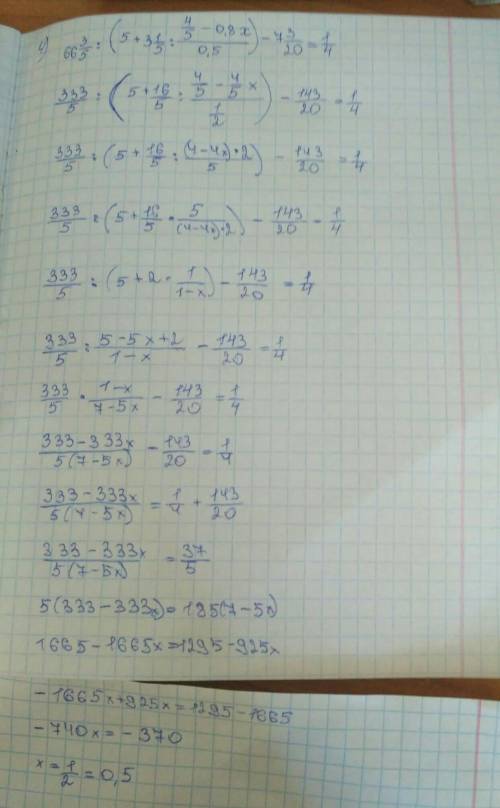 4) 66 3/5 : (5 + 3 1/5 : (4/5 − 0,8x)/0,5) − 7 3/20 = 1/4
333/5 : (5 + 16/5 : (4/5 − 4/5 x)/(1/2)) − 143/20 = 1/4
333/5 : (5 + 16/5 : (4−4x)·2/5) − 143/20 = 1/4
333/5 : (5 + 16/5 · 5/((4−4x)·2)) − 143/20 = 1/4
333/5 : (5 + 2 · 1/(1−x)) − 143/20 = 1/4
333/5 : (5−5x+2)/(1−x) − 143/20 = 1/4
333/5 · (1−x)/(7−5x) − 143/20 = 1/4
(333−333x)/(5(7−5x)) − 143/20 = 1/4
(333−333x)/(5(7−5x)) = 1/4 + 143/20
(333−333x)/(5(7−5x)) = 37/5
5(333−333x) = 185(7−5x)
1665−1665x=1295−925x
−1665x+925x=1295−1665
−740x=−370
x=1/2=0,5